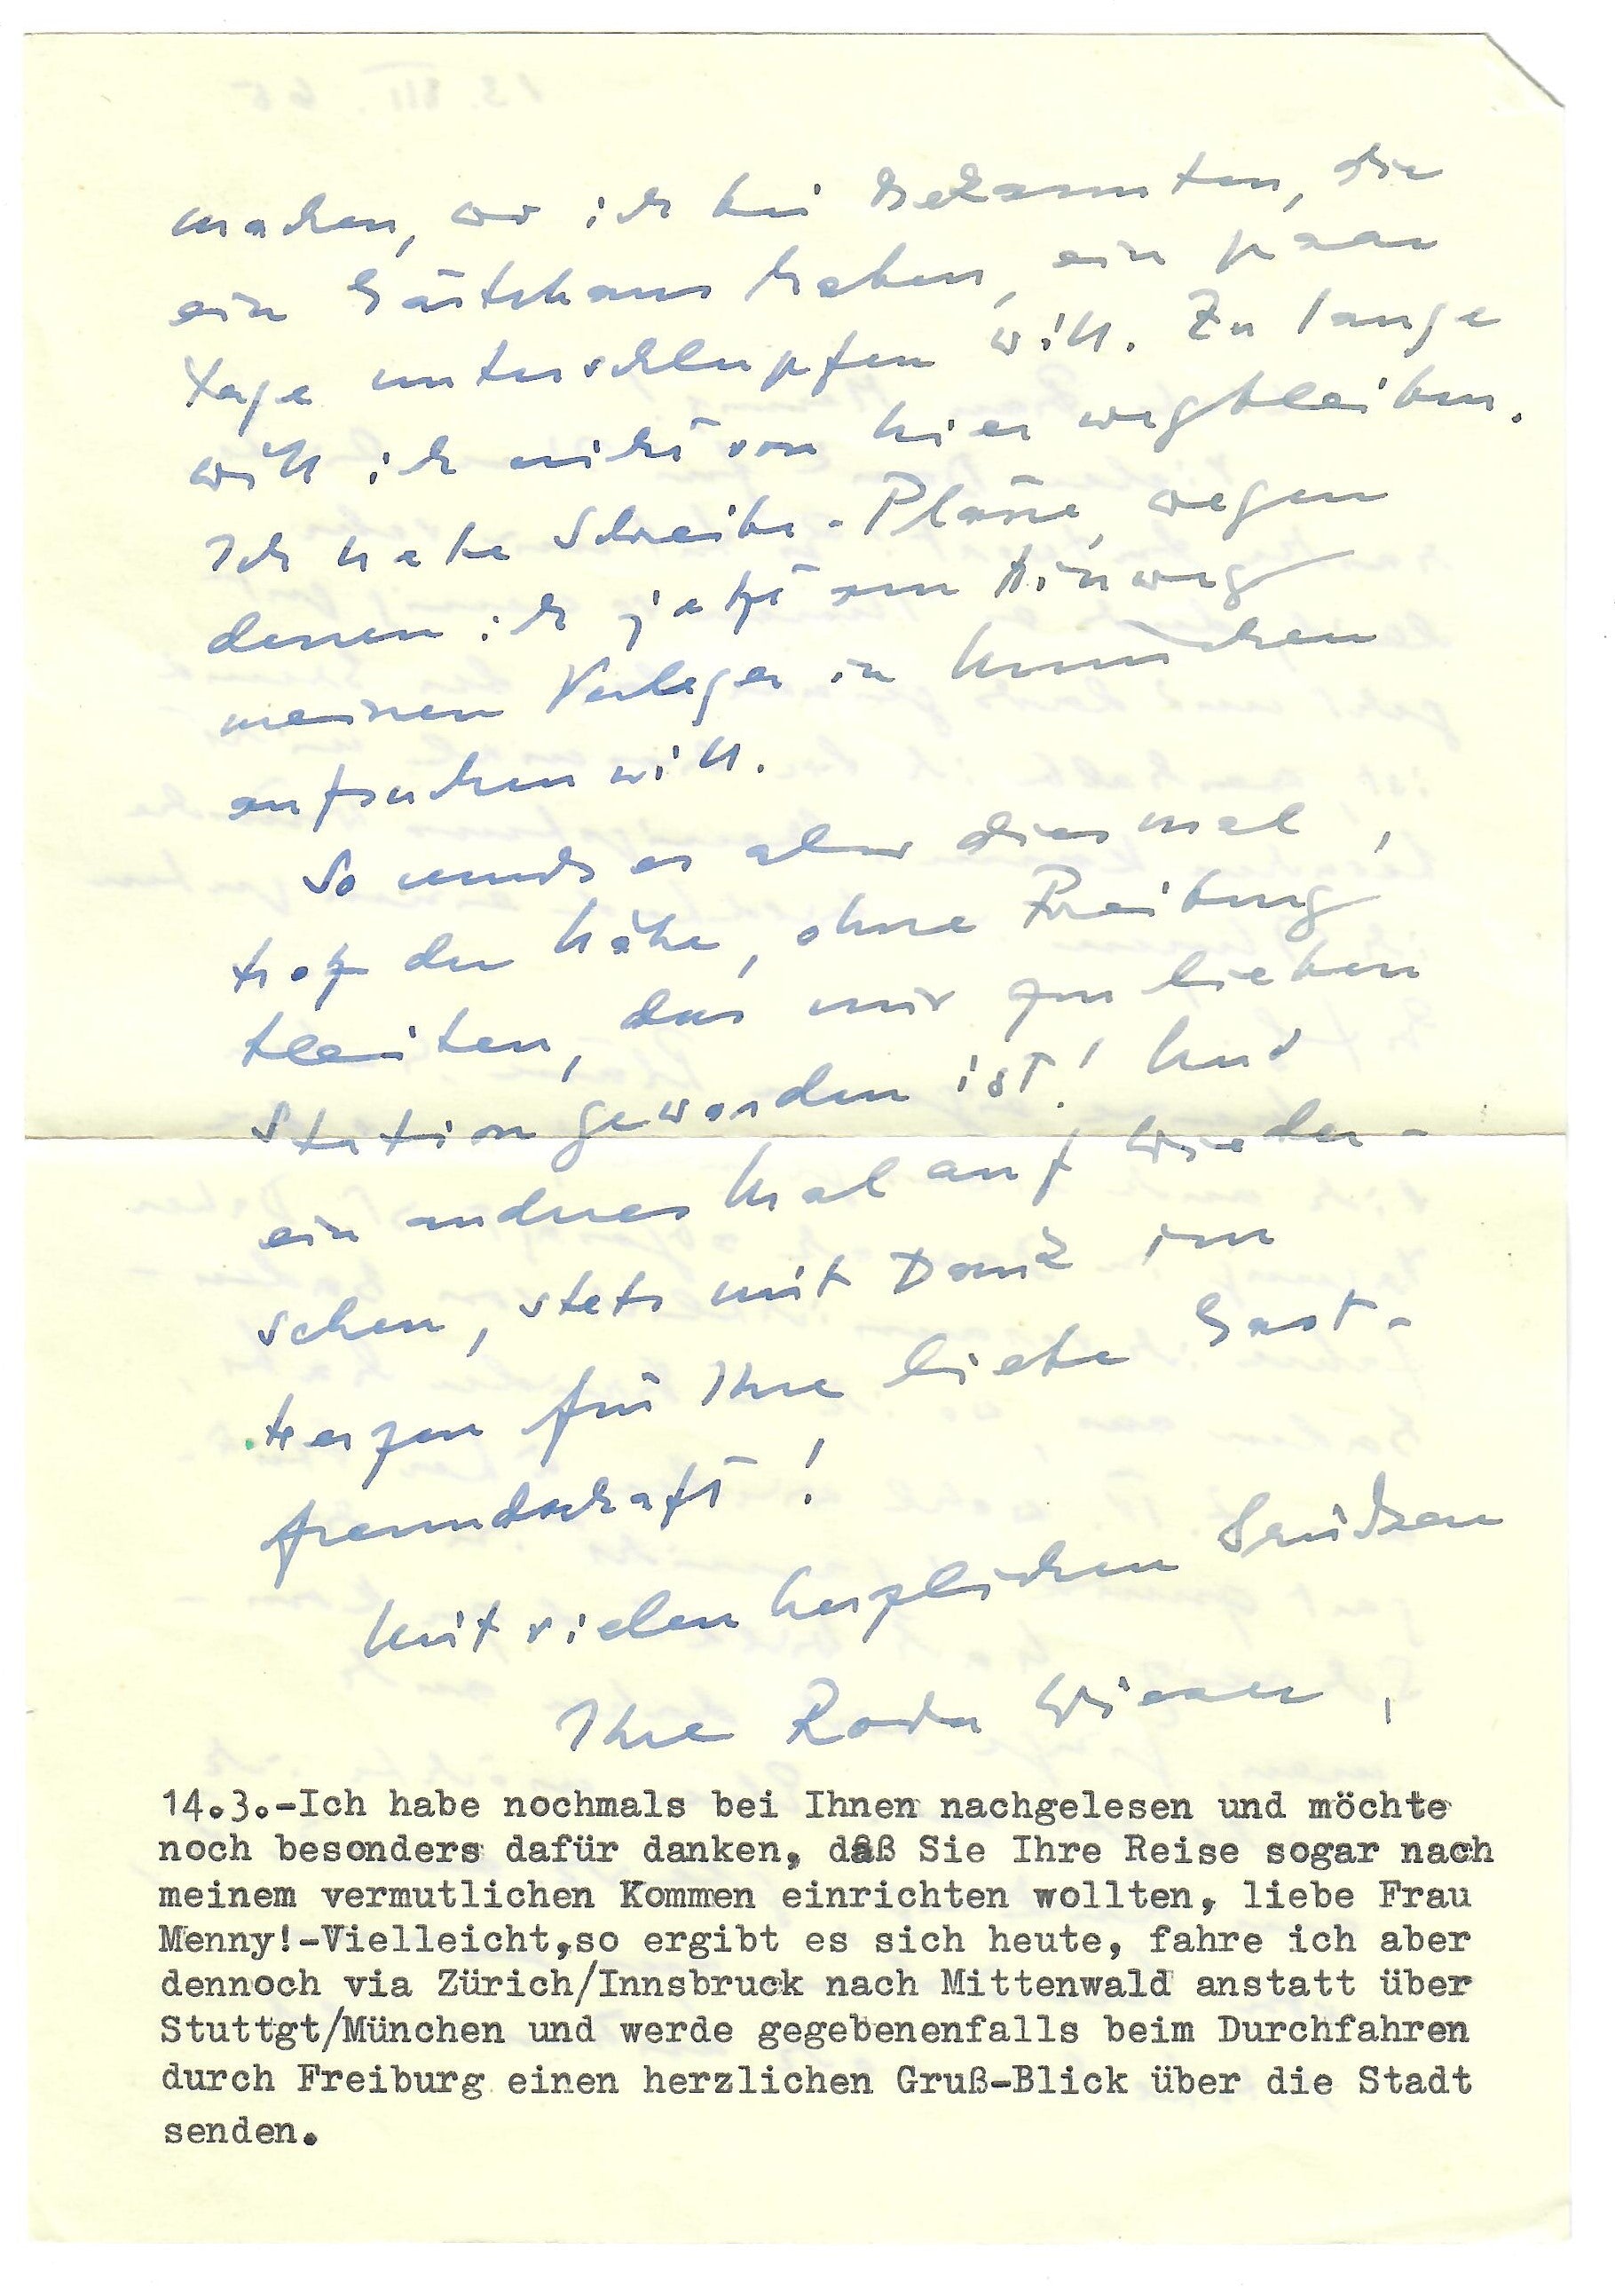 machen, wo ich bei Bekannten, die
ein Gästehaus haben, ein paar
Tage unterschlupfen will. Zu lange
will ich nicht von hier wegbleiben.
Ich habe Schreibe-Pläne, wegen
denen ich jetzt am Hinweg
meinen Verleger in München
aufsuchen will.
So muß es aber diesmal,
trotz der Nähe, ohne Freiburg
bleiben, das mir zur lieben
Station geworden ist! Auf
ein andres Mal auf Wieder-
sehen, stets mit Dank im
Herzen für Ihre liebe Gast-
freundschaft!
Mit vielen herzlichen Grüßen
Ihre Roda Wieser,
14.3.-Ich habe nochmals bei Ihnen nachgelesen und möchte
noch besonders dafür danken, daß Sie Ihre Reise sogar nach
meinem vermutlichen Kommen einrichten wollten, liebe Frau
Menny!-Vielleicht,so ergibt es sich heute, fahre ich aber
dennoch via Zürich/Innsbruck nach Mittenwald anstatt über
Stuttgt/München und werde gegebenenfalls beim Durchfahren
durch Freiburg einen herzlichen Gruß-Blick über die Stadt
senden.